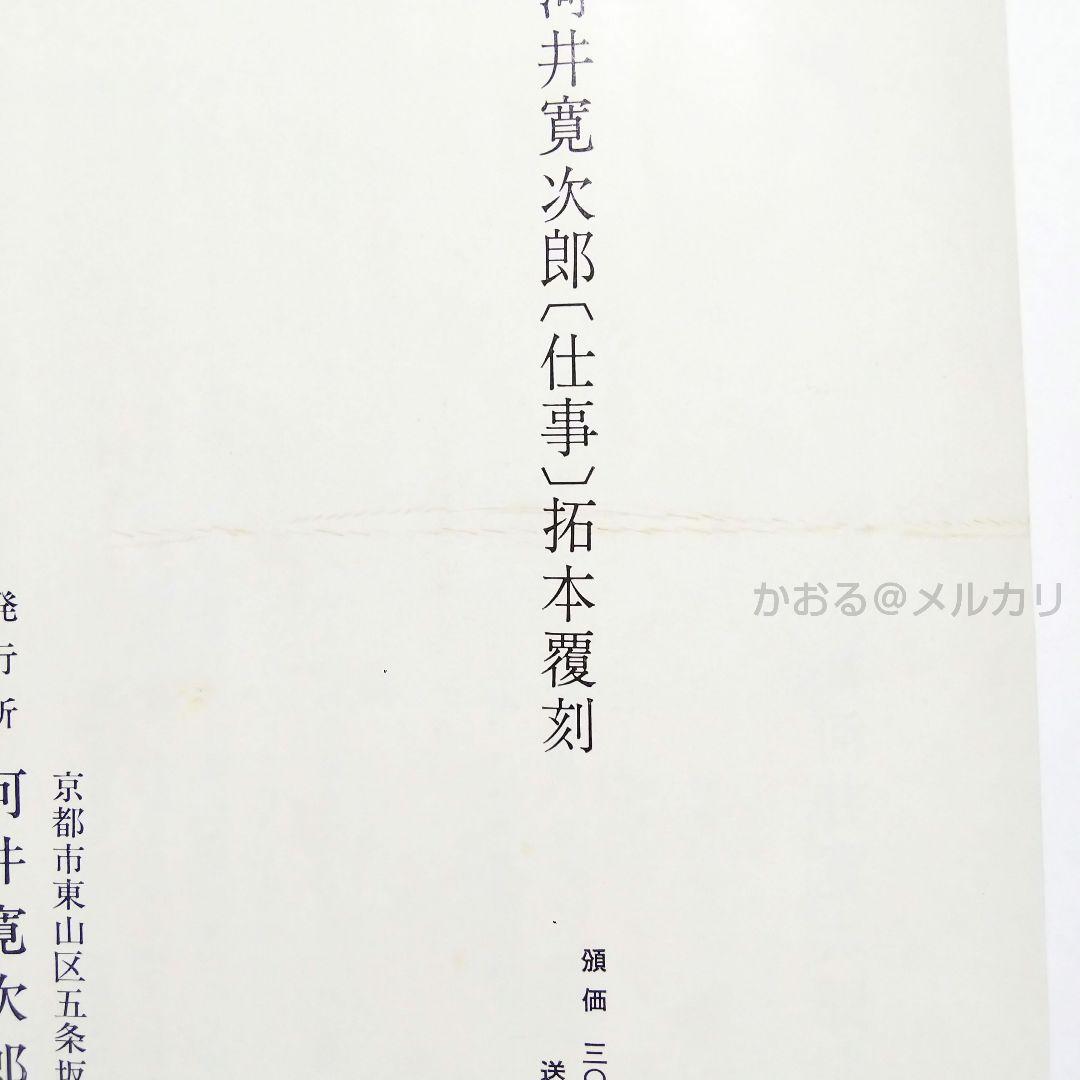 河井寛次郎〔仕事〕拓本覆刻
頒価 三〇
送
京都市東山区五条坂
発行所 河井寛次郎
かおる@メルカリ